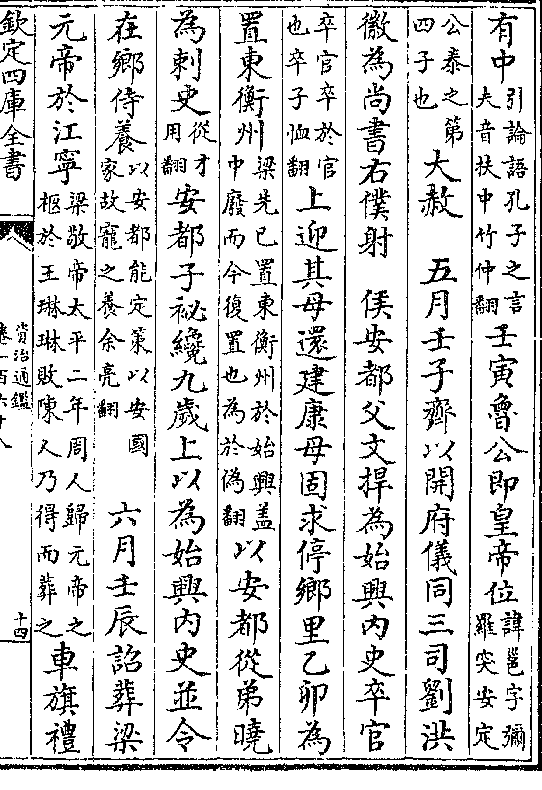 有中引論語孔子之言夫音扶中竹仲翻壬寅魯公即皇帝位諱邕字彌羅突安定
公泰之第四子也大赦　五月壬子齊以開府儀同三司劉洪
徽為尚書右僕射　侯安都父文捍為始興内史卒官
卒官卒於官也卒子恤翻上迎其母還建康母固求停鄉里乙卯為
置東衡州梁先已置東衡州於始興蓋中廢而今復置也為於偽翻以安都從弟曉
為刺史從才用翻安都子祕纔九歲上以為始興内史並令
在鄉侍養以安都能定策以安國家故寵之養余亮翻　六月壬辰詔葬梁
元帝於江寧梁敬帝太平二年周人歸元帝之柩於王琳琳敗陳人乃得而葬之車旗禮
欽定四庫全書
資治通鑑
卷一百六十八
十四